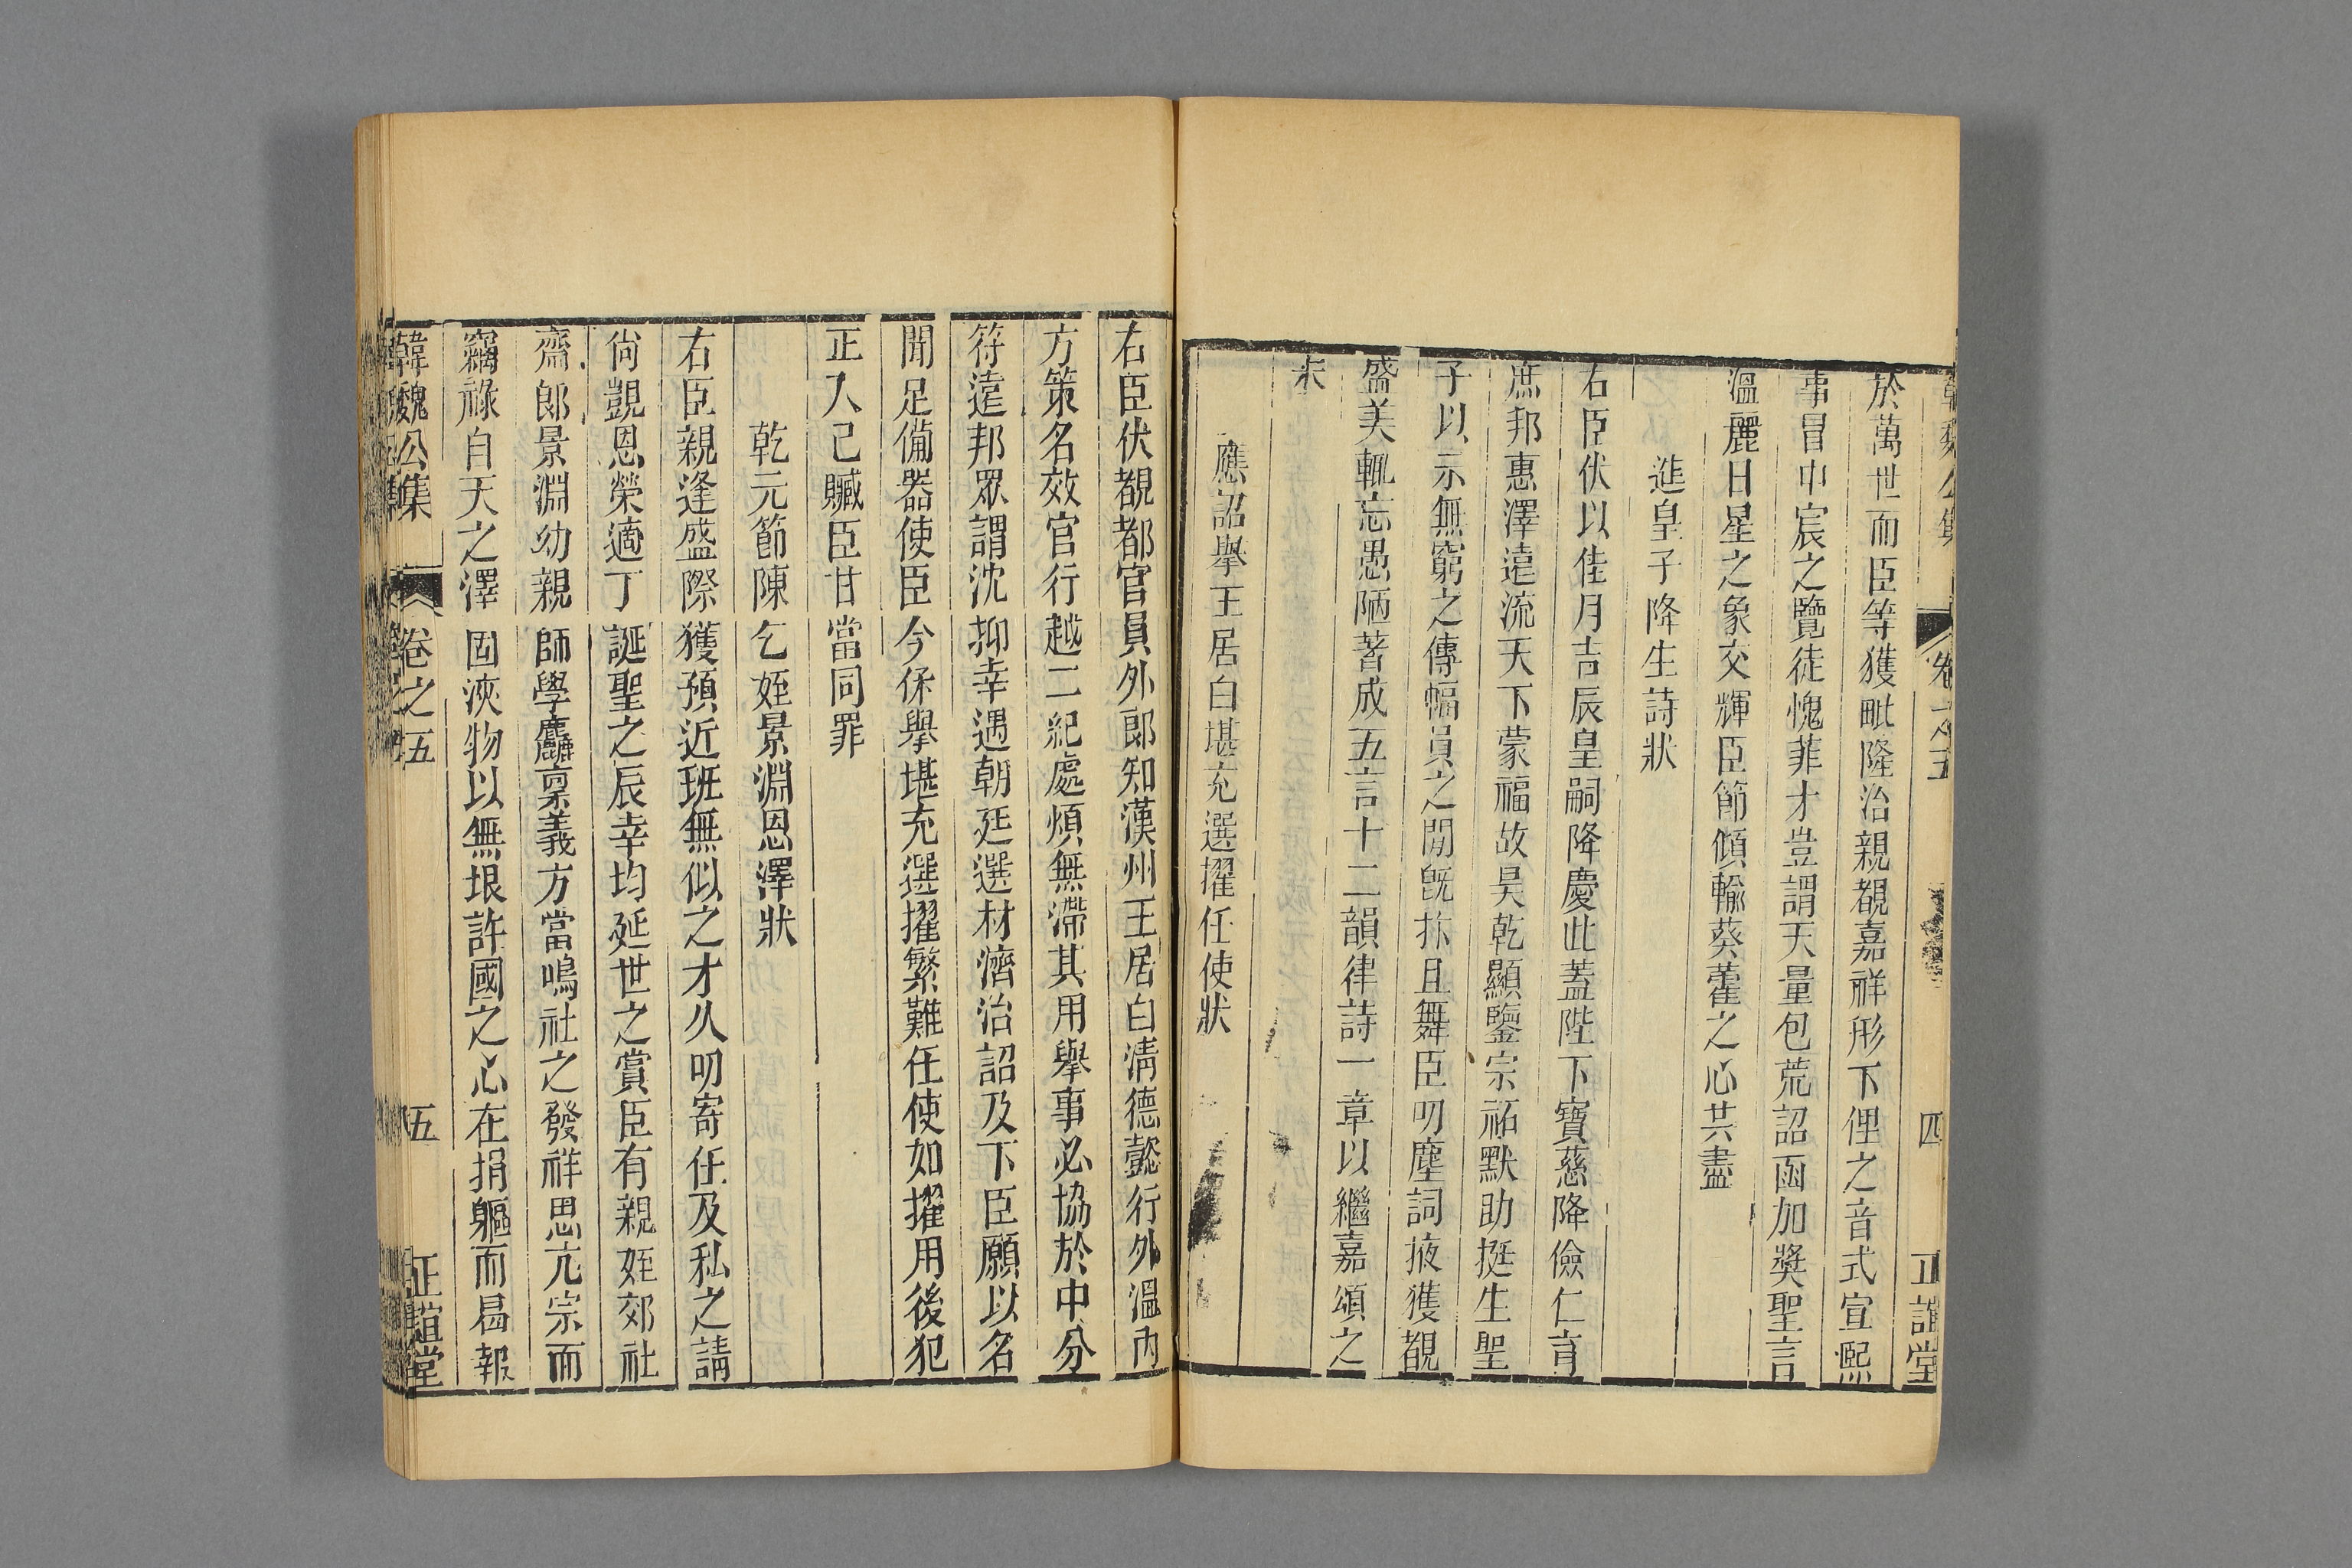 韓魏公集 卷之五 四 正誼堂
於萬世而臣等獲毗隆治親覩嘉祥形下俚之音式宣熙
事冒中宸之覽徒愧菲才豈謂天量包荒詔函加獎聖言
溫麗日星之象交輝臣節傾輸葵藿之心共盡
進皇子降生詩狀
右臣伏以佳月吉辰皇嗣降慶此蓋陛下寶慈降儉仁育
庶邦惠澤遠流天下蒙福故昊乾顯鑒宗祏默助挺生聖
子以示無窮之傳幅員之間旣抃且舞臣叨塵詞掖獲覩
盛美輒忘愚陋著成五言十二韻律詩一章以繼嘉頌之
末
應詔舉王居白堪充選擢任使狀
右臣伏覩都官員外郎知漢州王居白淸德懿行外溫內
方策名效官行越二紀處煩無滯其用舉事必協於中分
符遠邦眾謂沈抑幸遇朝廷選材濟治詔及下臣願以名
聞足備器使臣今保舉堪充選擢繁難任使如擢用後犯
正入己贓臣甘當同罪
乾元節陳乞姪景淵恩澤狀
右臣親逢盛際獲預近班無似之才久叨寄任及私之請
尙覬恩榮適丁誕聖之辰幸均延世之賞臣有親姪郊社
齋郎景淵幼親師學麤稟義方當鳴社之發祥思亢宗而
竊祿自天之澤固浹物以無垠許國之心在捐軀而曷報
韓魏公集 卷之五 五 正誼堂